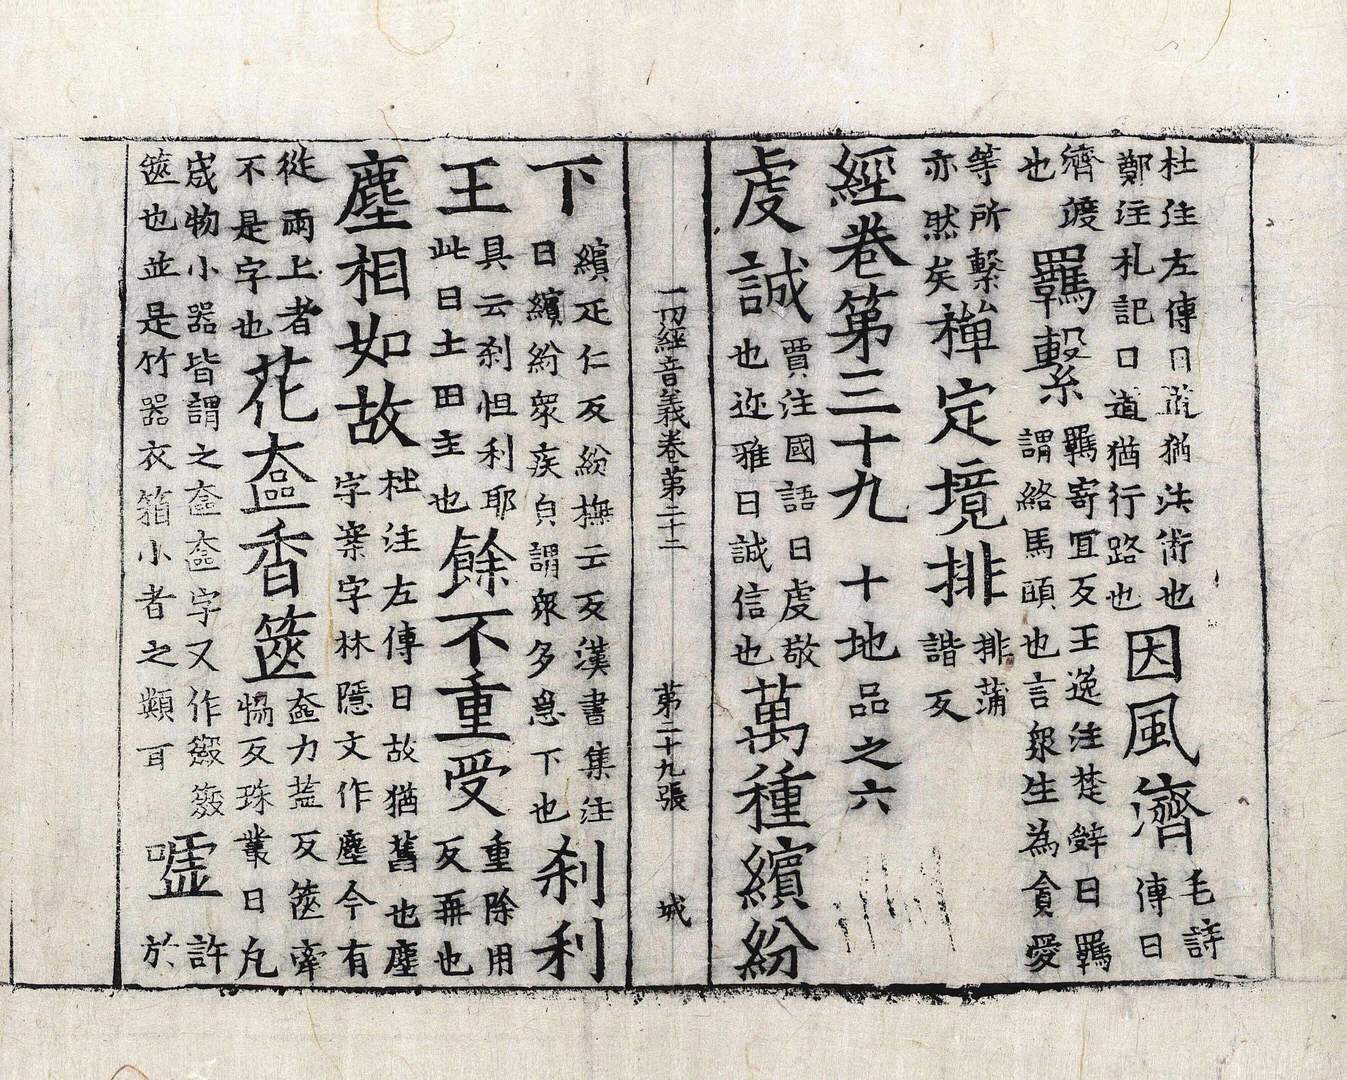 杜注左傳曰道猶法術也鄭注礼記曰道猶行路也因風濟毛詩傳曰
濟渡也羈繫羈寄冝反王逸注楚辝曰羈謂絡馬頭也言衆生為貪愛
等所繫亦然矣禪定境排排蒲諧反
經卷第三十九 十地品之六
虔誠賈注國語曰虔敬也迩雅曰誠信也萬種繽紛
一切經音義卷第二十二 第二十九張 城
下繽疋仁反紛撫云反漢書集注曰繽紛衆疾皃謂衆多急下也刹利
王具云刹怛利耶此曰土田主也餘不重受重除用反再也
塵相如故杜注左傳曰故猶舊也塵字案字林隱文作塵今有
從兩上者不是字也花奩香篋奩力葢反篋牽愶反珠叢曰凡
盛物小器皆謂之奩奩字又作籢篋也並是竹器衣箱小者之類耳噓許於